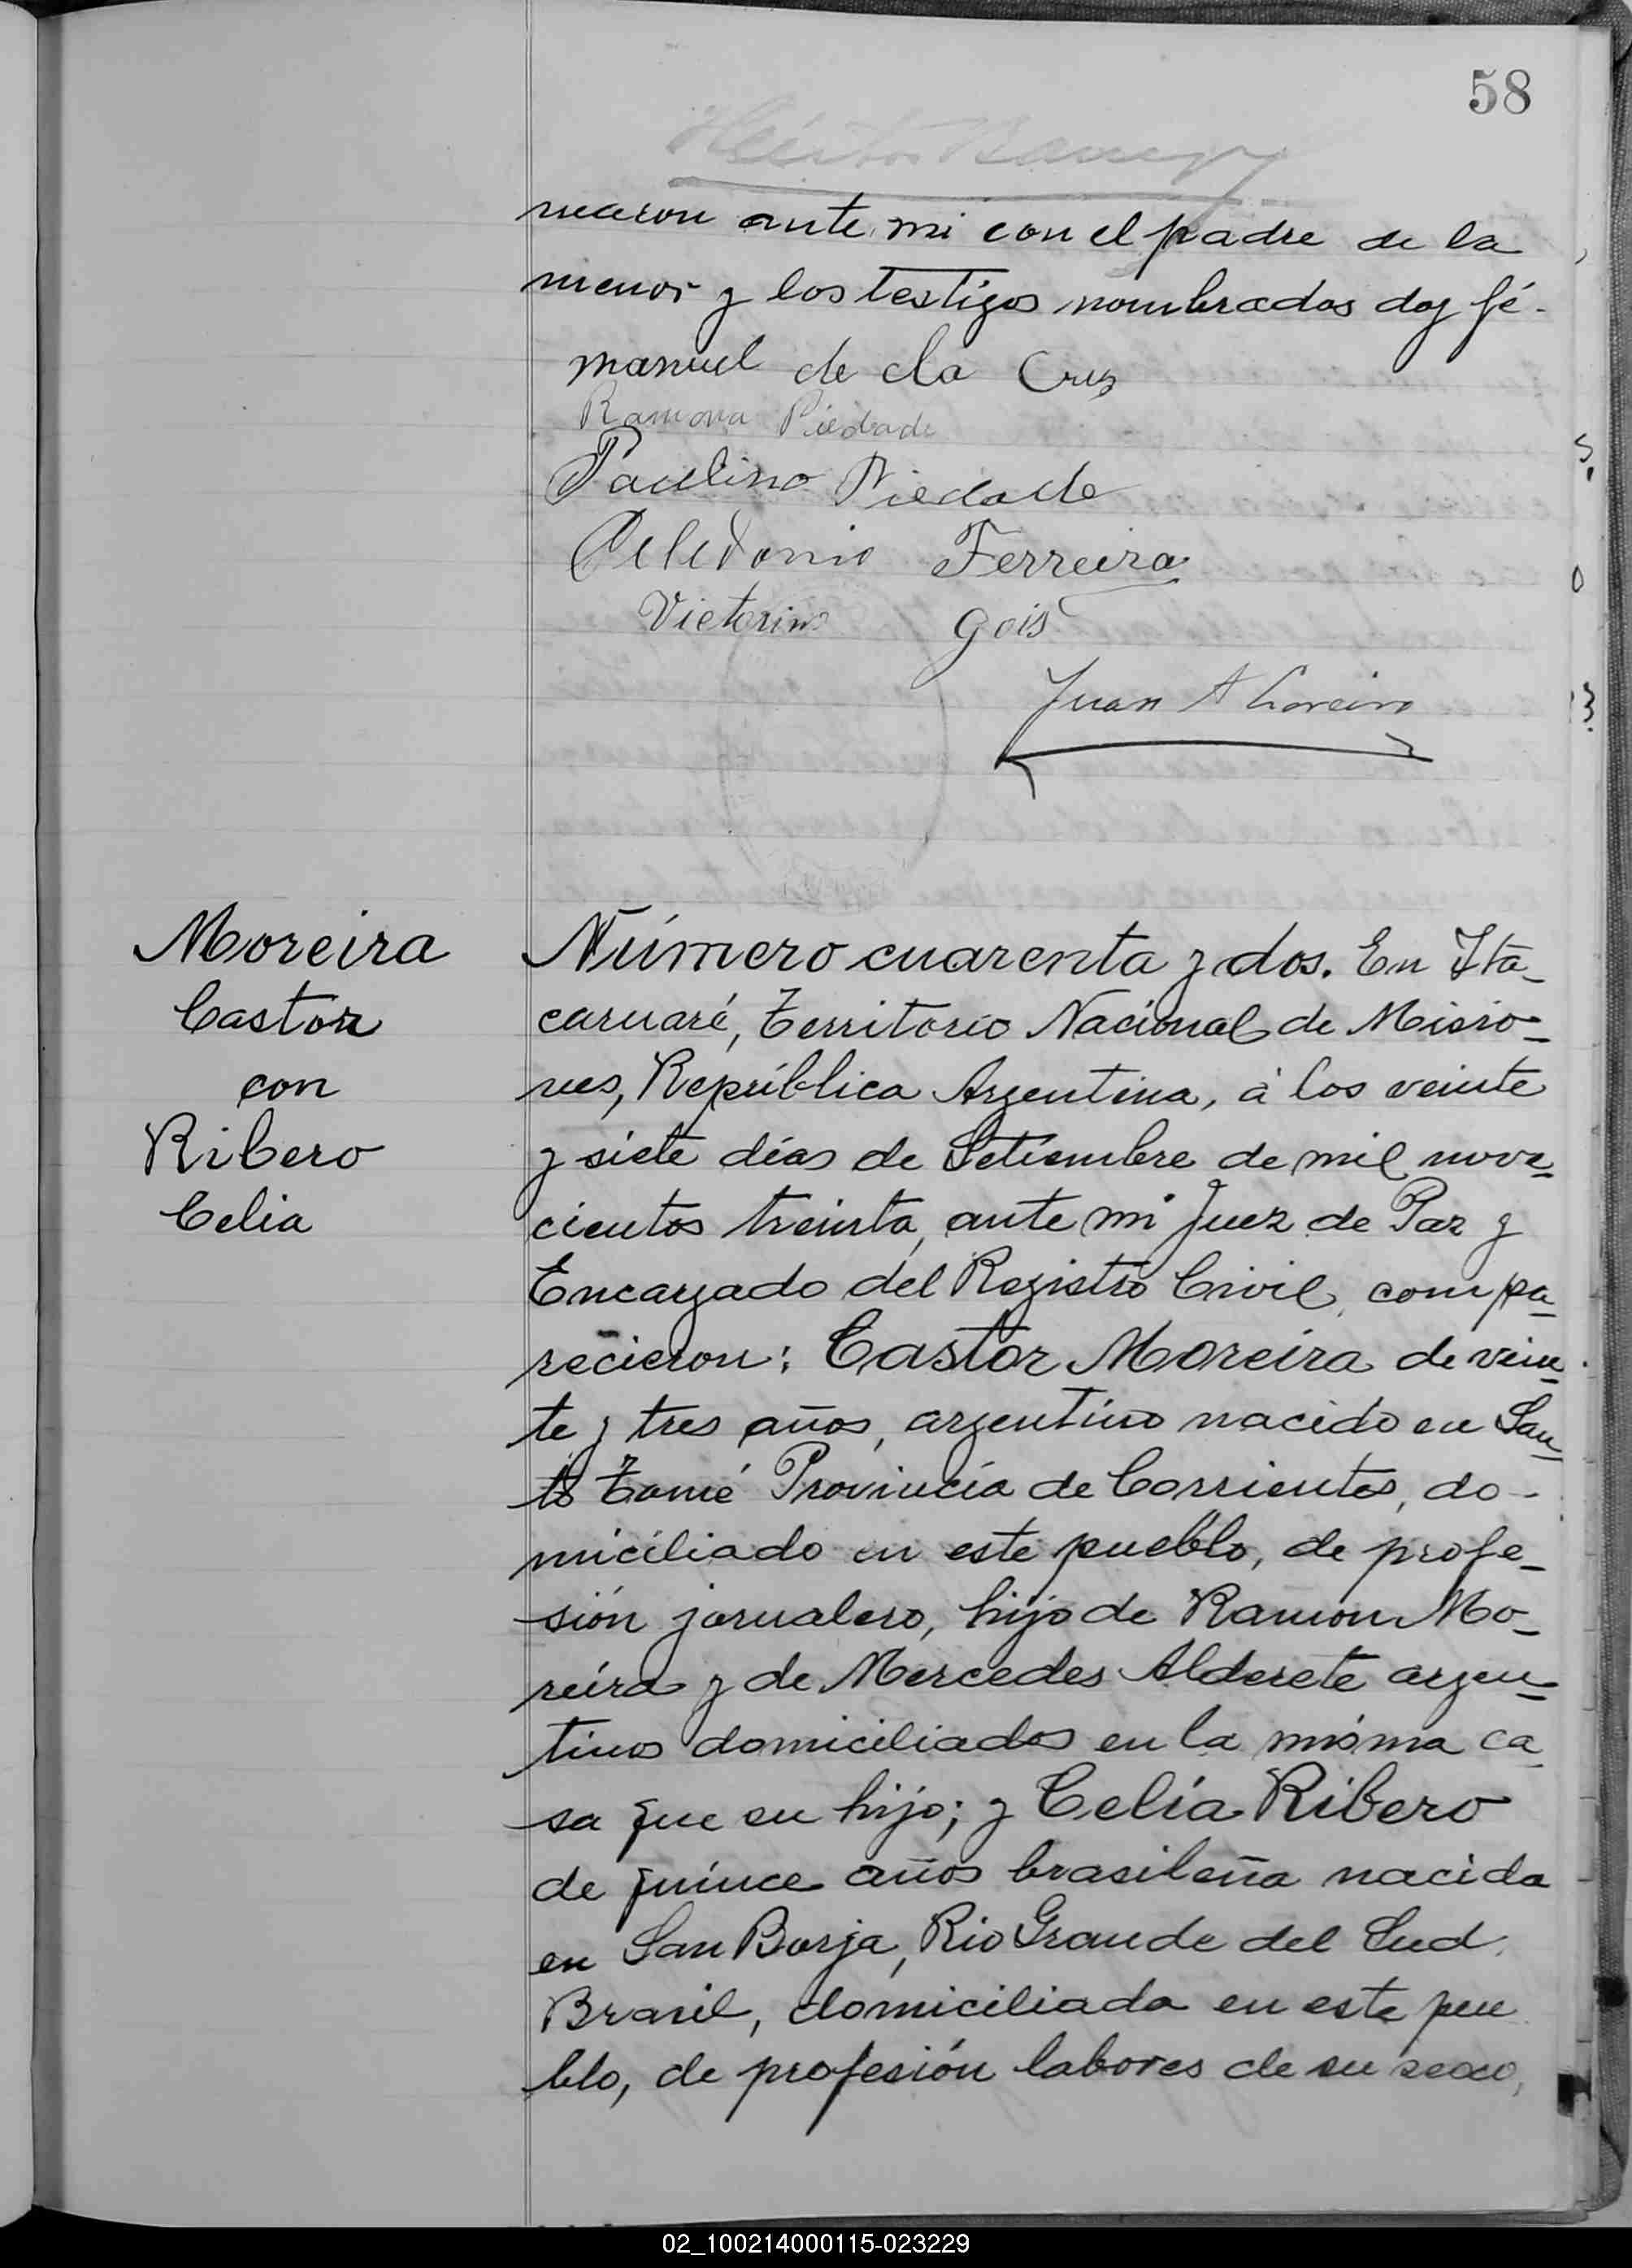 58
Héctor Barreyro
maron ante mi con el padre de la
menor y los testigos nombrados doy fé.
manuel de la Cruz
Ramona Piedade
Paulino Piedade
Celedonio Ferreira
Victorino Gois
Juan A
Moreira
Castor
con
Ribero
Celia
Número cuarenta y dos. En Ita-
caruaré, Territorio Nacional de Misio-
nes, República Argentina, á los veinte
y siete días de Setiembre de mil nove-
cientos treinta, ante mi Juez de Paz y
Encargado del Registro Civil, compa-
recieron: Castor Moreira de vein-
te y tres años, argentino nacido en San-
to Tomé Provincia de Corrientes, do-
miciliado en este pueblo, de profe-
sión jornalero, hijo de Ramon Mo-
reira y de Mercedes Alderete argen-
tinos domiciliados en la misma ca-
sa que su hijo; y Celia Ribero
de quince años brasileña nacida
en San Borja, Rio Grande del Sud,
Brasil, domiciliada en este pue
blo, de profesión labores de su sexo,
02_100214000115-023229